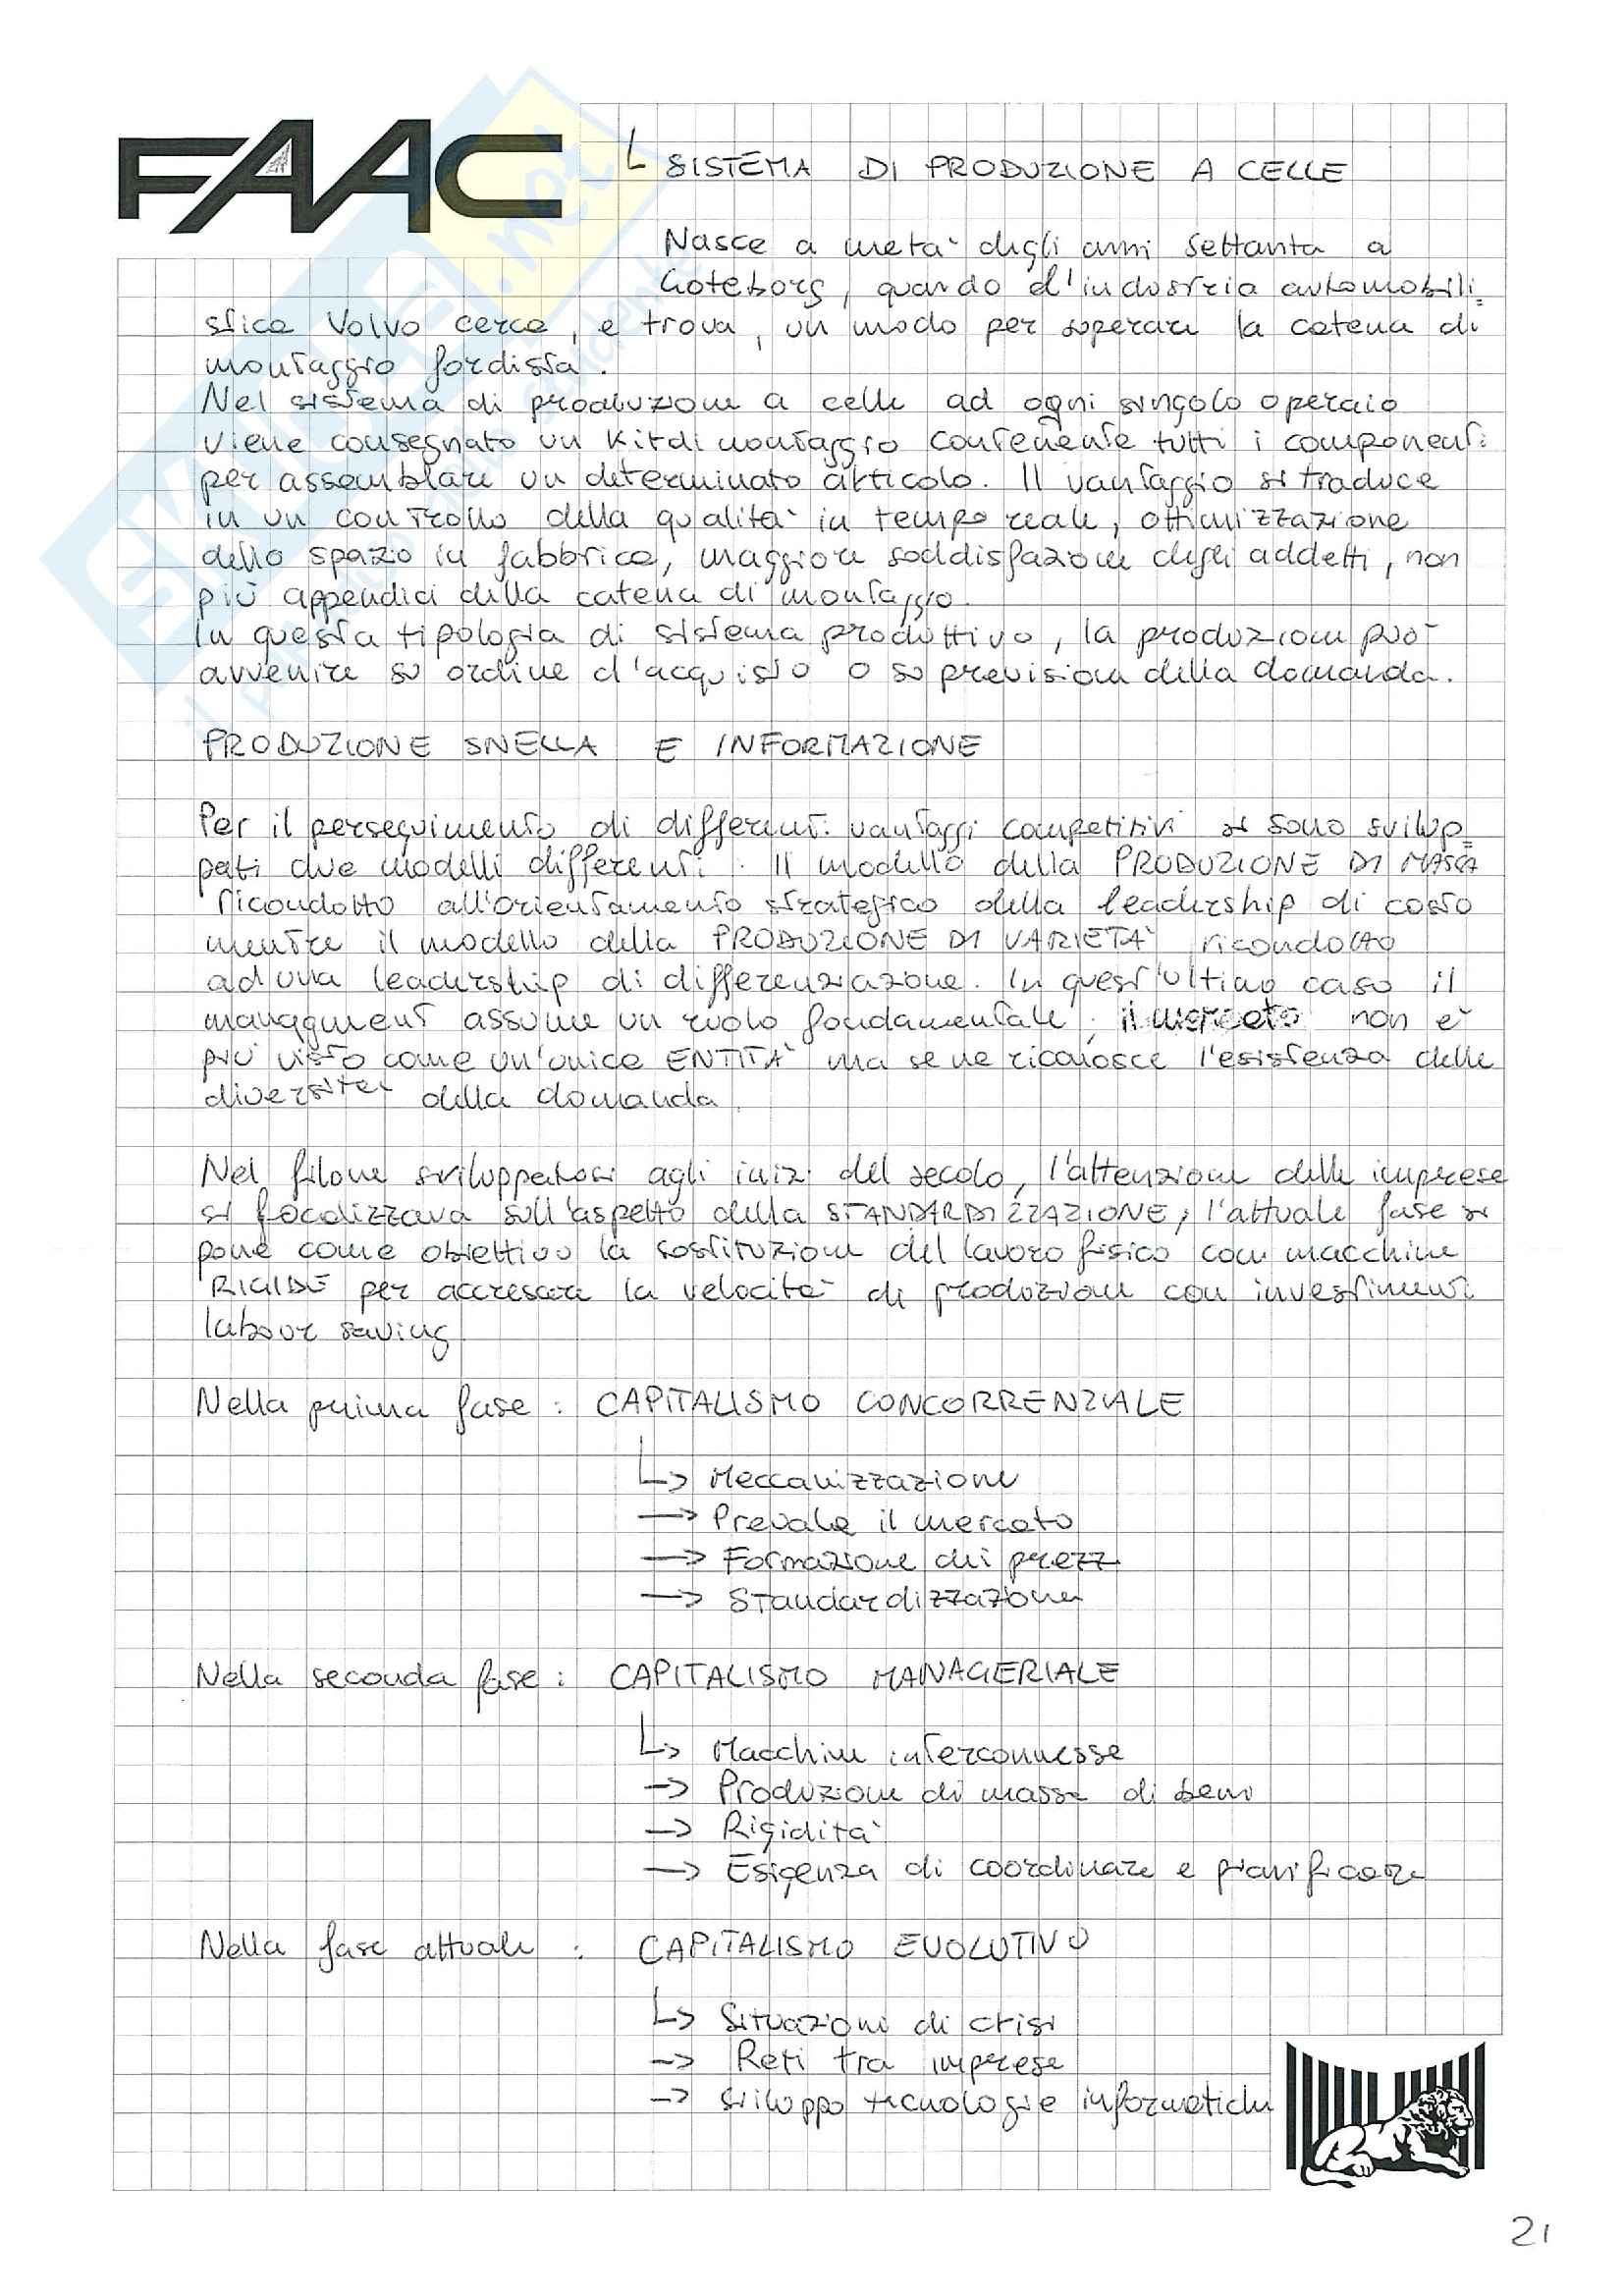 FAAC
SISTEMA DI PRODUZIONE A CELLE
Nasce a metà degli anni settanta a
Goteborg, quando d'industria automobili=
stica Volvo cerca, e trova, un modo per superare la catena di
montaggio fordista.
Nel sistema di produzione a celle ad ogni singolo operaio
viene consegnato un Kit di montaggio contenente tutti i componenti
per assemblare un determinato articolo. Il vantaggio si traduce
in un controllo della qualità in tempo reale, ottimizzazione
dello spazio in fabbrica, maggiore soddisfazione degli addetti, non
più appendici della catena di montaggio.
In questa tipologia di sistema produttivo, la produzione può
avvenire su ordine d'acquisto o su previsione della domanda.
PRODUZIONE SNELLA E INFORMAZIONE
Per il perseguimento di differenti vantaggi competitivi si sono svilup=
pati due modelli differenti. Il modello della PRODUZIONE DI MASSA
ricondotto all'orientamento strategico della leadership di costo
mentre il modello della PRODUZIONE DI VARIETÀ ricondotto
ad una leadership di differenziazione. In quest'ultimo caso il
managment assume un ruolo fondamentale; il mercato non è
più visto come un'unica ENTITÀ ma se ne riconosce l'esistenza delle
diversità della domanda.
Nel filone sviluppatosi agli inizi del secolo, l'attenzione delle imprese
si focalizzava sull'aspetto della STANDARDIZZAZIONE; l'attuale fase si
pone come obiettivo la sostituzione del lavoro fisico con macchine
RIGIDE per accrescere la velocità di produzione con investimenti
labour saving
Nella prima fase: CAPITALISMO CONCORRENZIALE
↳ Meccanizzazione
→ Prevale il mercato
→ Formazione dei prezzi
→ Standardizzazione
Nella seconda fase: CAPITALISMO MANAGERIALE
↳ Macchine interconnesse
→ Produzione di massa di beni
→ Rigidità
→ Esigenza di coordinare e pianificare
Nella fase attuale: CAPITALISMO EVOLUTIVO
↳ Situazioni di crisi
→ Reti tra imprese
→ Sviluppo tecnologie informatiche
21